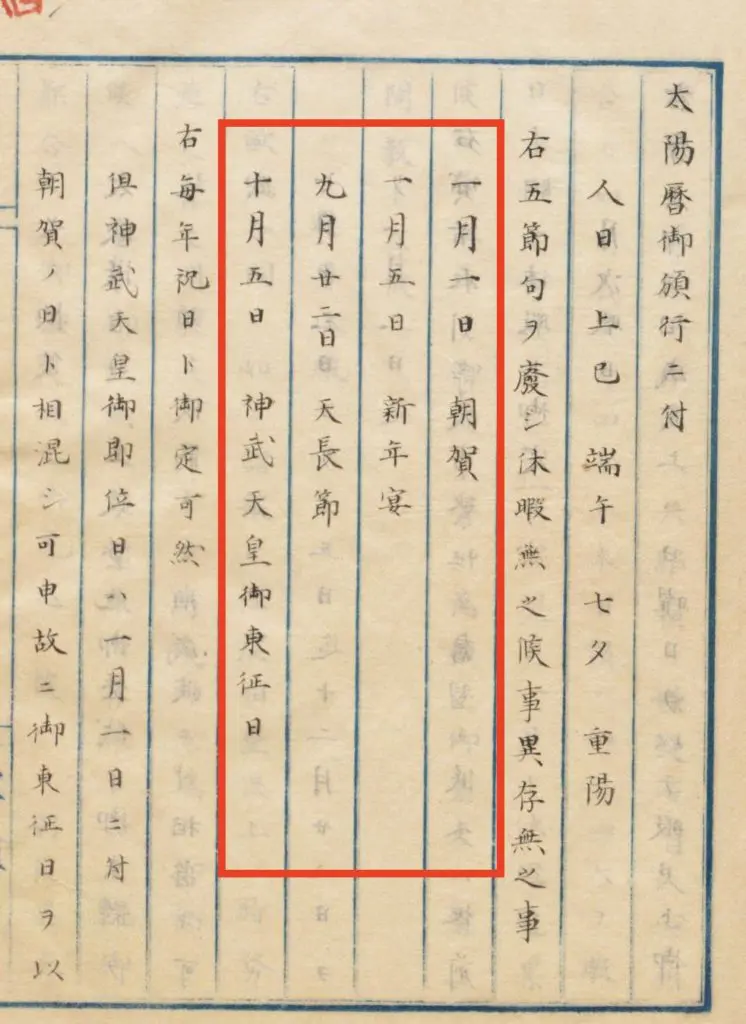 太陽暦御頒行ニ付
人日上巳端午七夕重陽
右五節句ヲ廃シ休暇無之候事異存無之事
一月一日朝賀
一月五日新年宴
九月廿二日天長節
十月五日神武天皇御東征日
右毎年祝日ト御定可然
倶神武天皇御即位日ハ一月一日ニ付
朝賀ノ日ト相混シ可申故ニ御東征日ヲ以